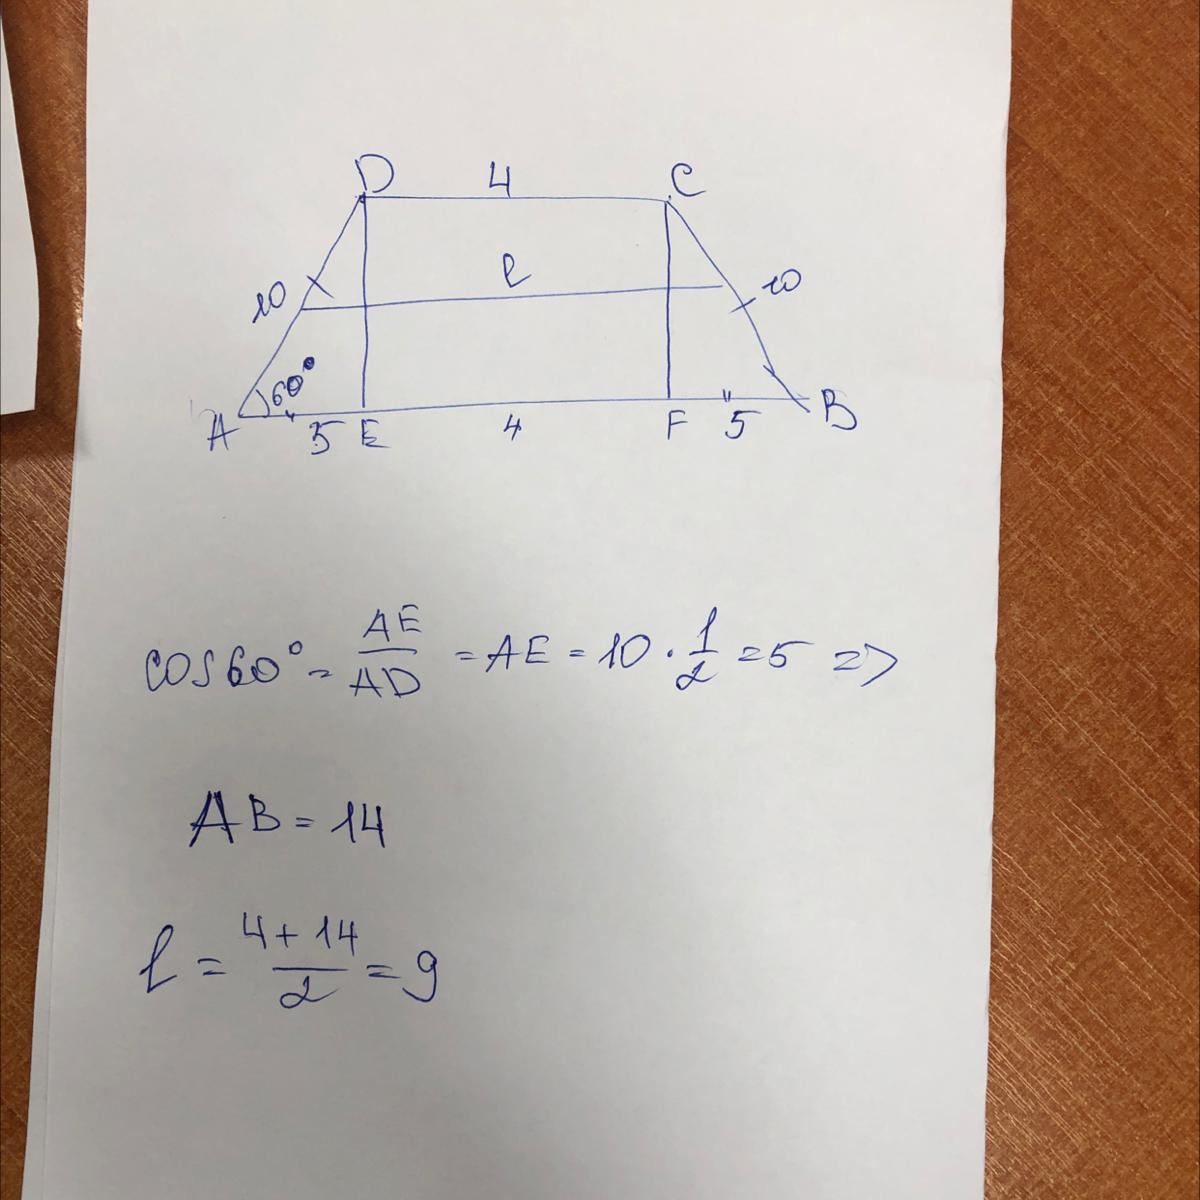 D 4 C
10 ℓ 10
60°
A 5 E 4 F 5 B
cos60° = AE/AD = AE = 10 · 1/2 = 5 =>
AB = 14
ℓ = (4+14)/2 = 9